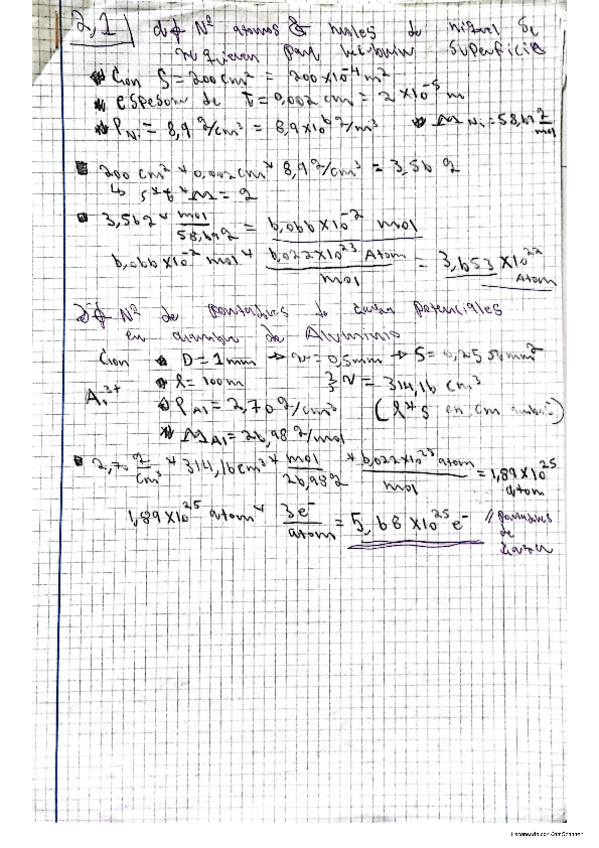 2,1 d) Nº atomos & moles de niquel se
requieren para recubrir superficie
Con S = 200 cm² = 200 x 10⁻⁴ m²
espesor de t = 0,002 cm = 2 x 10⁻⁵ m
ρNi = 8,9 g/cm³ = 8,9 x 10⁶ g/m³ MNi = 58,69 g/mol
200 cm² * 0,002 cm * 8,9 g/cm³ = 3,56 g
↳ s * t * = g
3,56 g * mol/58,69 g = 6,066 x 10⁻² mol
6,066 x 10⁻² mol * 6,022 x 10²³ Atom/mol = 3,653 x 10²² Atom
Nº de portadores de carga potenciales
en de Aluminio
Con D = 1 mm → r = 0,5 mm → S = 0,25 π mm²
Al³⁺ l = 100 m V = 314,16 cm³
ρAl = 2,70 g/cm³ (l * s en cm)
MAl = 26,98 g/mol
2,70 g/cm³ * 314,16 cm³ * mol/26,98 g * 6,022 x 10²³ atom/mol = 1,89 x 10²⁵ atom
1,89 x 10²⁵ atom * 3e⁻/atom = 5,68 x 10²⁵ e⁻ // portadores de carga
Escaneado con CamScanner